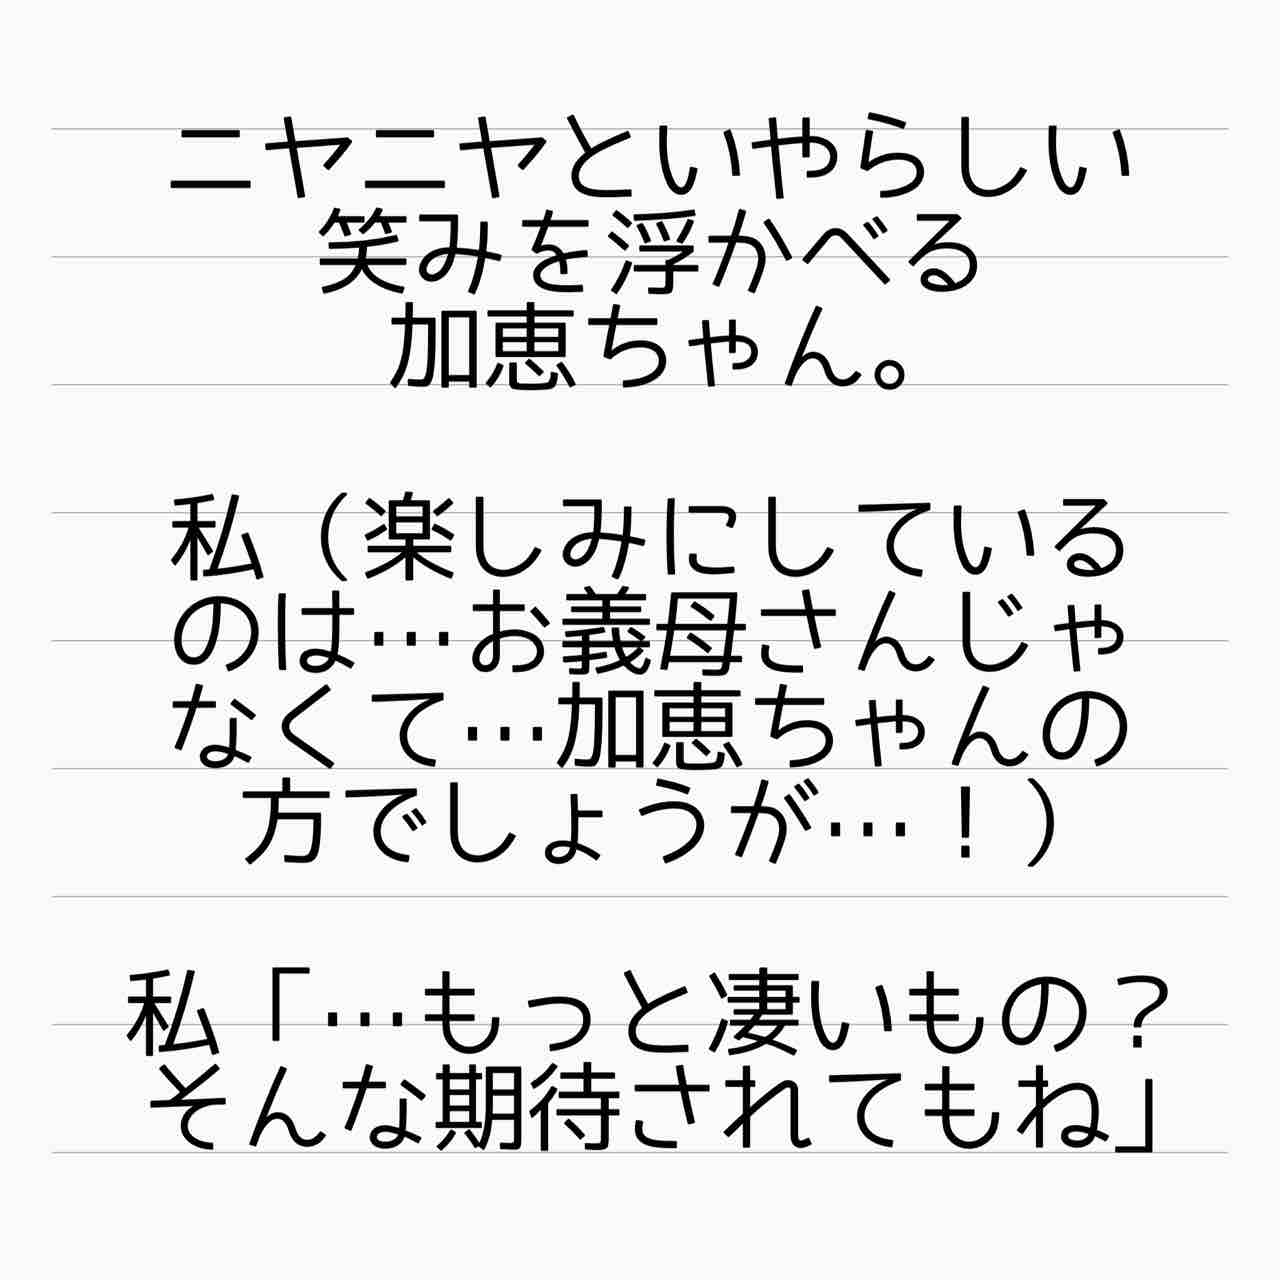 ニヤニヤといやらしい
笑みを浮かべる
加恵ちゃん。
私（楽しみにしている
のは…お義母さんじゃ
なくて…加恵ちゃんの
方でしょうが…！）
私「…もっと凄いもの？
そんな期待されてもね」